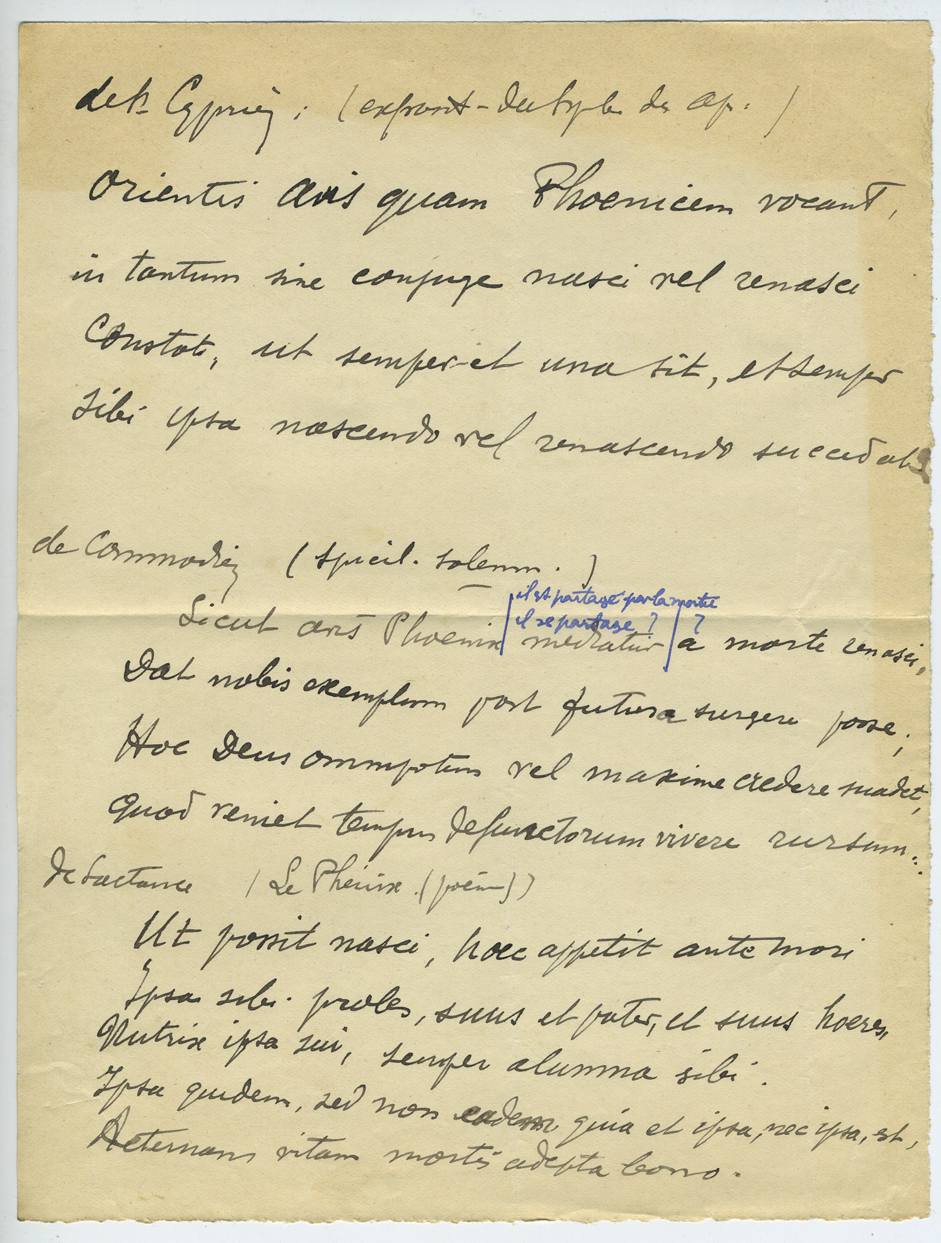 de St Cyprien : (exposit- du Symb. des Ap. )
Orientis avis quam Phoenicem vocant,
in tantum sine conjuge nasci vel renasci
Constat, ut semper et una sit, et semper
sibi ipsa nascendo vel renascendo succedat
de Commodien (spicil. solemn. )
il est partagé par la mort
il se partage ? ?
Sicut avis Phoenix meditatur a morte renasci,
Dat nobis exemplum post futura surgere posse ;
Hoc Deus omnipotens vel maxime credere suadet,
quod veniet tempus defunctorum vivere rursum.
de Lactance (Le Phénix (poëm))
Ut possit nasci, hoec appetit ante mori
Ipsa sibi proles, suus et pater, et suus hoeres,
Nutrix ipsa sui, semper alumna sibi.
Ipsa quidem, sed non eadem quia et ipsa, nec ipsa, est,
Aeternam vitam mortis adepta bono.